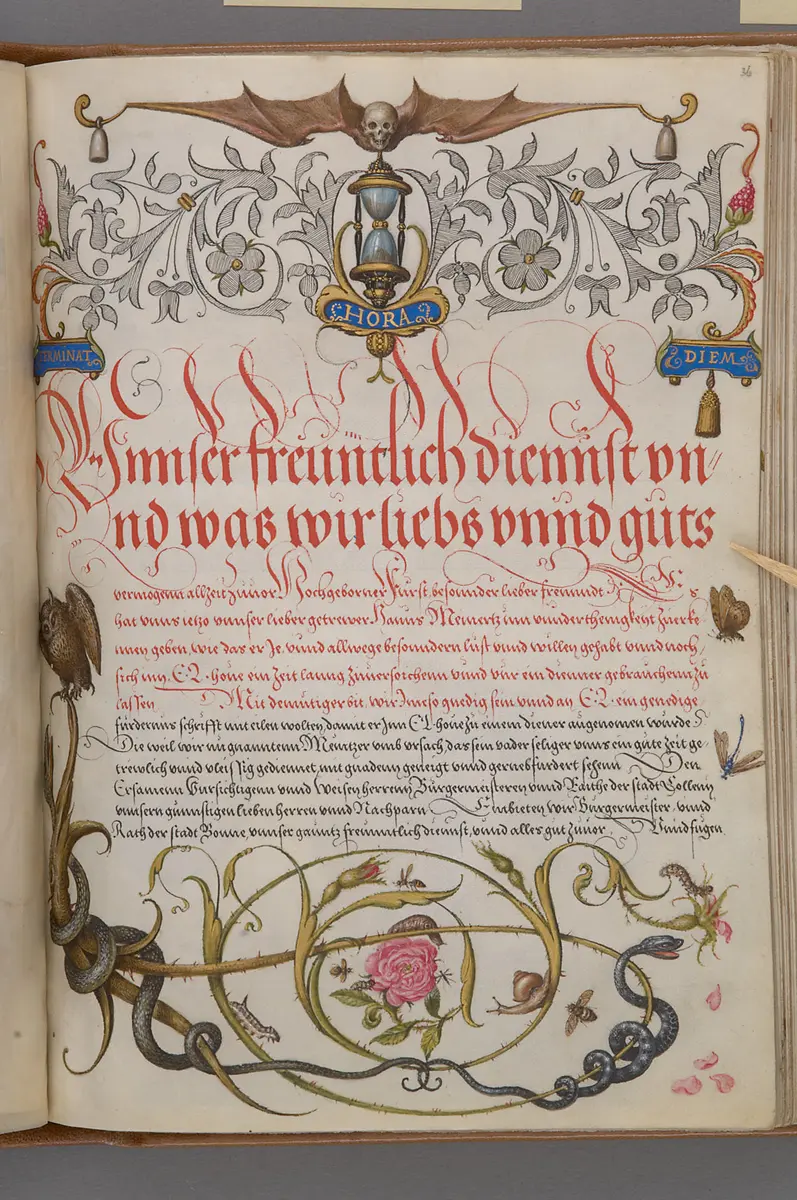 36
HORA
TERMINAT
DIEM
Vnnser freuntlich diennst vn//
nd was wir liebs vnnd guts
vermogenn allzeit zuuor Hochgeborner Furst, besonder lieber freundt Es
hat vnns ietzo vnnser lieber getrewer Hanns Meinertz inn vnnderthenigkeyt zuerke
nnen geben, wie das er Je, vnnd allwege besondern lust vnnd willen gehabt vnnd noch,
sich inn E L houe ein zeit lanng zuuersoichenn vnnd vur ein dienner gebrauchenn zu
lassen Mit demutiger bit, wir Jme so gnedig sein vnnd an E L ein genedige
furdernus schrifft mit eilen wolten, damit er Jnn E L houe zu einem diener angenomen wurde
Die weil wir nu gnanntenn Mentzer vmb vrsach das sein vader seliger vnns ein gute zeit ge-
trewlich vnnd vleissig gediennet, mit gnadem geneigt vnnd gerne befurdert sehenn Den
Ersamenn Fursichtigenn vnnd Weisen herrenn Burgermeisteren vnnd Raithe der stadt Collenn
vnnsern gunnstigen lieben herren vnnd Nachparn Embieten wir Burgermeister, vnnd
Rath der stadt Bonne, vnnser gantz freunntlich diennst, vnnd alles gut zuuor, Vnnd fugen